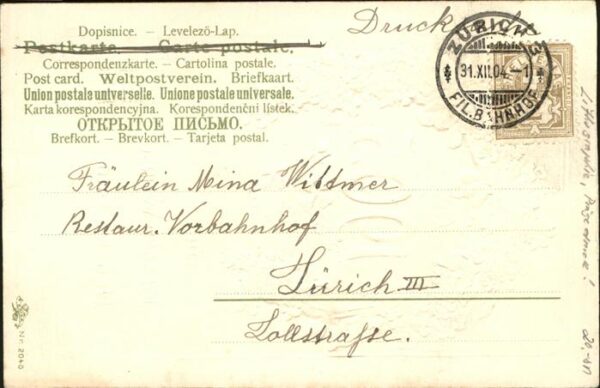 Dopisnice. – Levelező-Lap.
Postkarte. – Carte postale.
Correspondenzkarte. – Cartolina postale.
Post card. Weltpostverein. Briefkaart.
Union postale universelle. Unione postale universale.
Karta korespondencyjna. Korespondenční lístek.
ОТКРЫТОЕ ПИСЬМО.
Brefkort. – Brevkort. – Tarjeta postal.
Druck
ZÜRICH
31.XII.04.–1
FIL. BAHNHOF
Fräulein Mina Wittmer
Restaur. Vorbahnhof
Zürich III
Zollstraße.
Nr. 2040
20,-